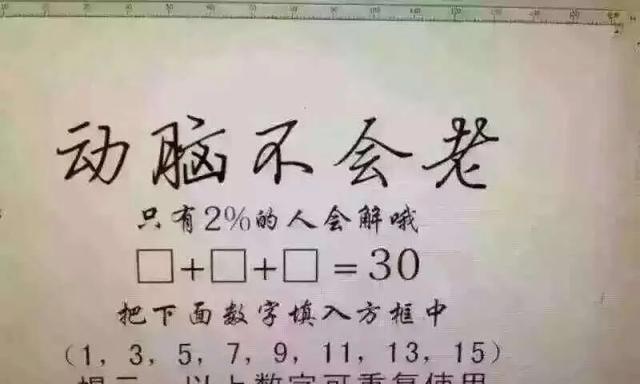 动脑不会老
只有2%的人会解哦
□+□+□=30
把下面数字填入方框中
(1, 3, 5, 7, 9, 11, 13, 15)
以上数字可重复使用